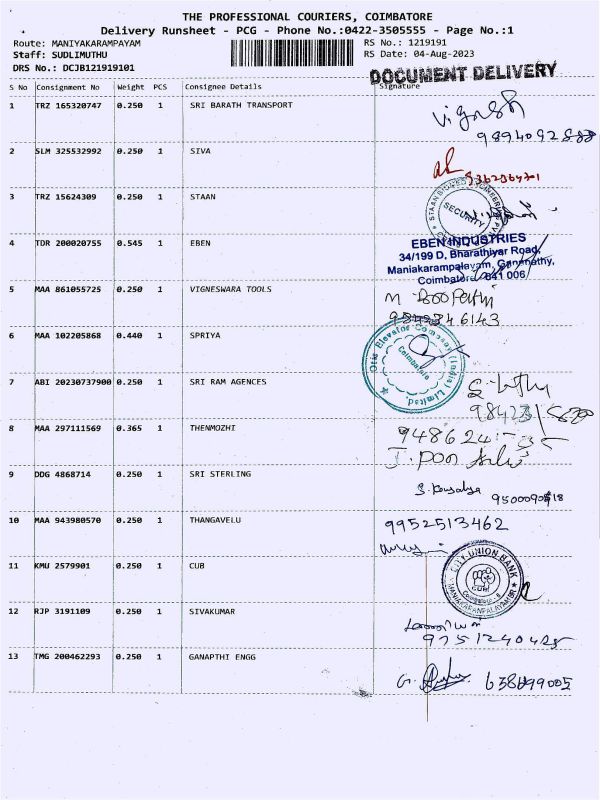 THE PROFESSIONAL COURIERS, COIMBATORE
Delivery Runsheet - PCG - Phone No.:0422-3505555 - Page No.:1
Route: MANIYAKARAMPAYAM RS No.: 1219191
Staff: SUDLIMUTHU RS Date: 04-Aug-2023
DRS No.: DCJB121919101
DOCUMENT DELIVERY
S No Consignment No Weight PCS Consignee Details Signature
1 TRZ 165320747 0.250 1 SRI BARATH TRANSPORT
Vignesh
2 SLM 325532992 0.250 1 SIVA
3 TRZ 15624309 0.250 1 STAAN
SECURITY
4 TDR 200020755 0.545 1 EBEN
EBEN INDUSTRIES
34/199 D, Bharathiyar Road,
Maniakarampalayam, Ganapathy,
Coimbatore - 641 006
5 MAA 861055725 0.250 1 VIGNESWARA TOOLS
M Boopathi
6 MAA 102205868 0.440 1 SPRIYA
Otis Elevator Company (India) Limited.
Coimbatore
7 ABI 20230737900 0.250 1 SRI RAM AGENCES
8 MAA 297111569 0.365 1 THENMOZHI
9 DDG 4868714 0.250 1 SRI STERLING
S. Kousalya
10 MAA 943980570 0.250 1 THANGAVELU
9952513462
11 KMU 2579901 0.250 1 CUB
CITY UNION BANK
12 RJP 3191109 0.250 1 SIVAKUMAR
13 TMG 200462293 0.250 1 GANAPTHI ENGG